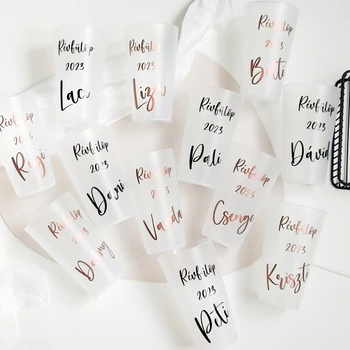 Révfülöp
2023
Laci
Révfülöp
2023
Liza
Révfülöp
2023
Betti
Révfülöp
2023
Régi
Révfülöp
2023
Dani
Révfülöp
2023
Pali
Révfülöp
2023
Dávid
Révfülöp
2023
Vanda
Révfülöp
2023
Csenge
Révfülöp
2023
Révfülöp
2023
Peti
Révfülöp
2023
Kriszti